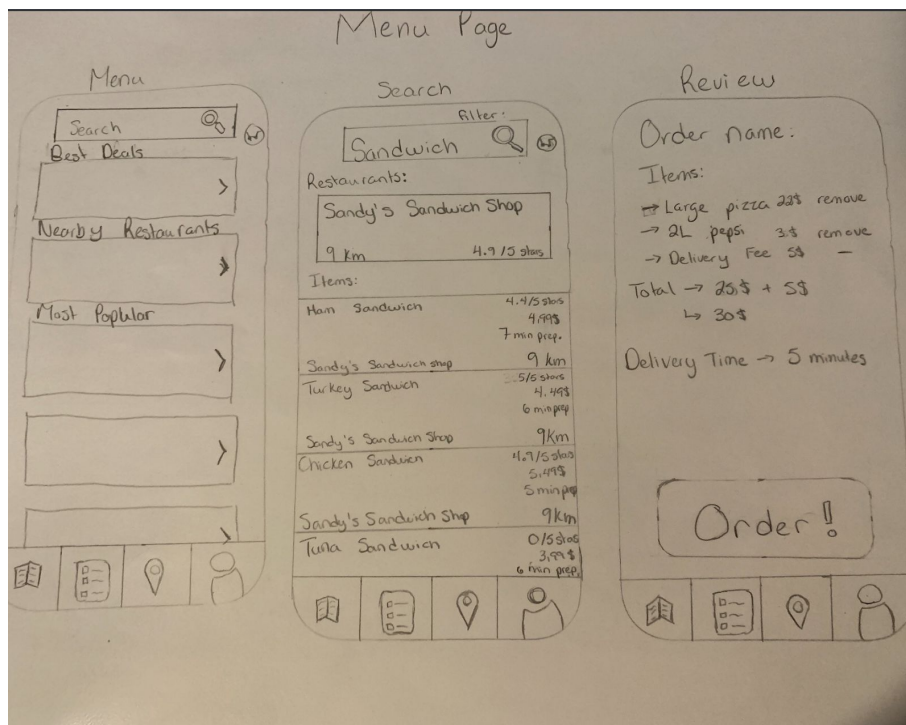 Menu Page
Menu
Search
Best Deals
Nearby Restaurants
Most Poplular
Search
filter:
Sandwich
Restaurants:
Sandy's Sandwich Shop
9 km 4.9/5 stars
Items:
Ham Sandwich 4.4/5 stars
4.99$
7 min prep.
Sandy's Sandwich shop 9 km
Turkey Sandwich 5/5 stars
4.49$
6 min prep
Sandy's Sandwich Shop 9km
Chicken Sandwich 4.9/5 stars
5.49$
5 min prep
Sandy's Sandwich Shop 9km
Tuna Sandwich 0/5 stars
3.99$
6 min prep.
Review
Order name:
Items:
→ Large pizza 22$ remove
→ 2L pepsi 3$ remove
→ Delivery Fee 5$ —
Total → 25$ + 5$
↳ 30$
Delivery Time → 5 minutes
Order!